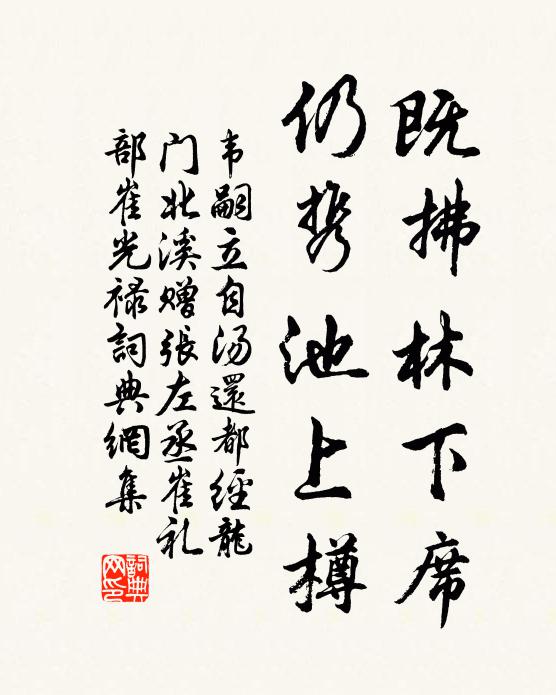 既拂林下席
仍携池上樽
韦嗣立自汤還都經龍
门北溪赠張左丞崔礼
部崔光禄詞典網集
詞典
网印